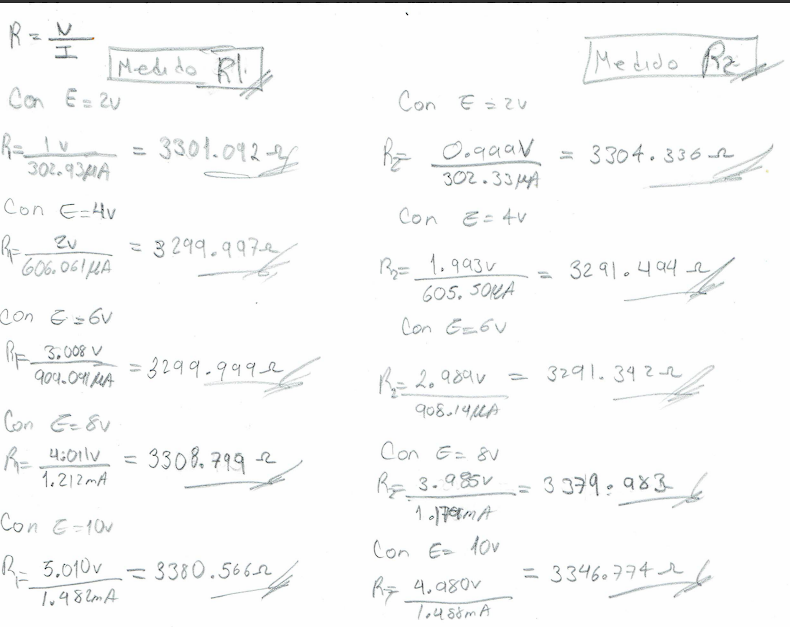 R = V / I
Medido R1.
Con E = 2v
R1 = 1v / 302.93µA = 3301.092 Ω
Con E=4v
R1 = 2v / 606.061µA = 3299.997Ω
Con E=6v
R1 = 3.008v / 909.091µA = 3299.999Ω
Con E=8v
R1 = 4.011v / 1.212mA = 3308.799 Ω
Con E=10v
R1 = 5.010v / 1.482mA = 3380.566Ω
Medido R2
Con E = 2v
R2 = 0.999V / 302.33µA = 3304.336 Ω
Con E= 4v
R2= 1.993v / 605.50µA = 3291.494 Ω
Con E=6v
R2= 2.989v / 908.14µA = 3291.342 Ω
Con E= 8v
R2= 3.985v / mA = 3379.983
Con E= 10v
R2 = 4.980v / 1.488mA = 3346.774 Ω